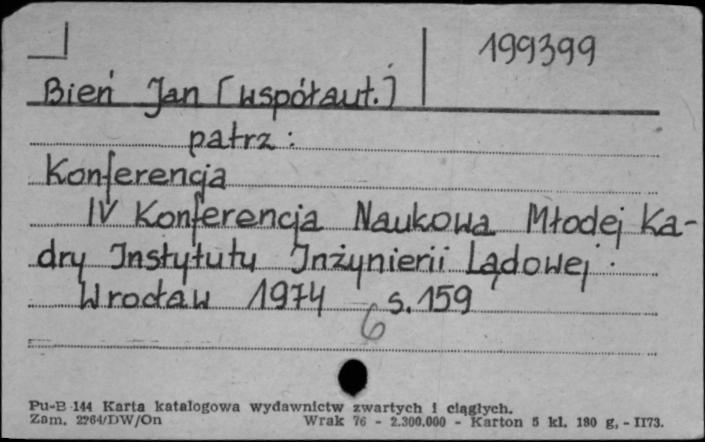 199399
Bień Jan [współaut.]
patrz:
Konferencja
IV Konferencja Naukowa Młodej Ka-
dry Instytutu Inżynierii Lądowej.
Wrocław 1974 s. 159
6
Pu-B 144 Karta katalogowa wydawnictw zwartych i ciągłych.
Zam. 2264/DW/On Wrak 76 - 2.300.000 - Karton 5 kl. 180 g, - II73.